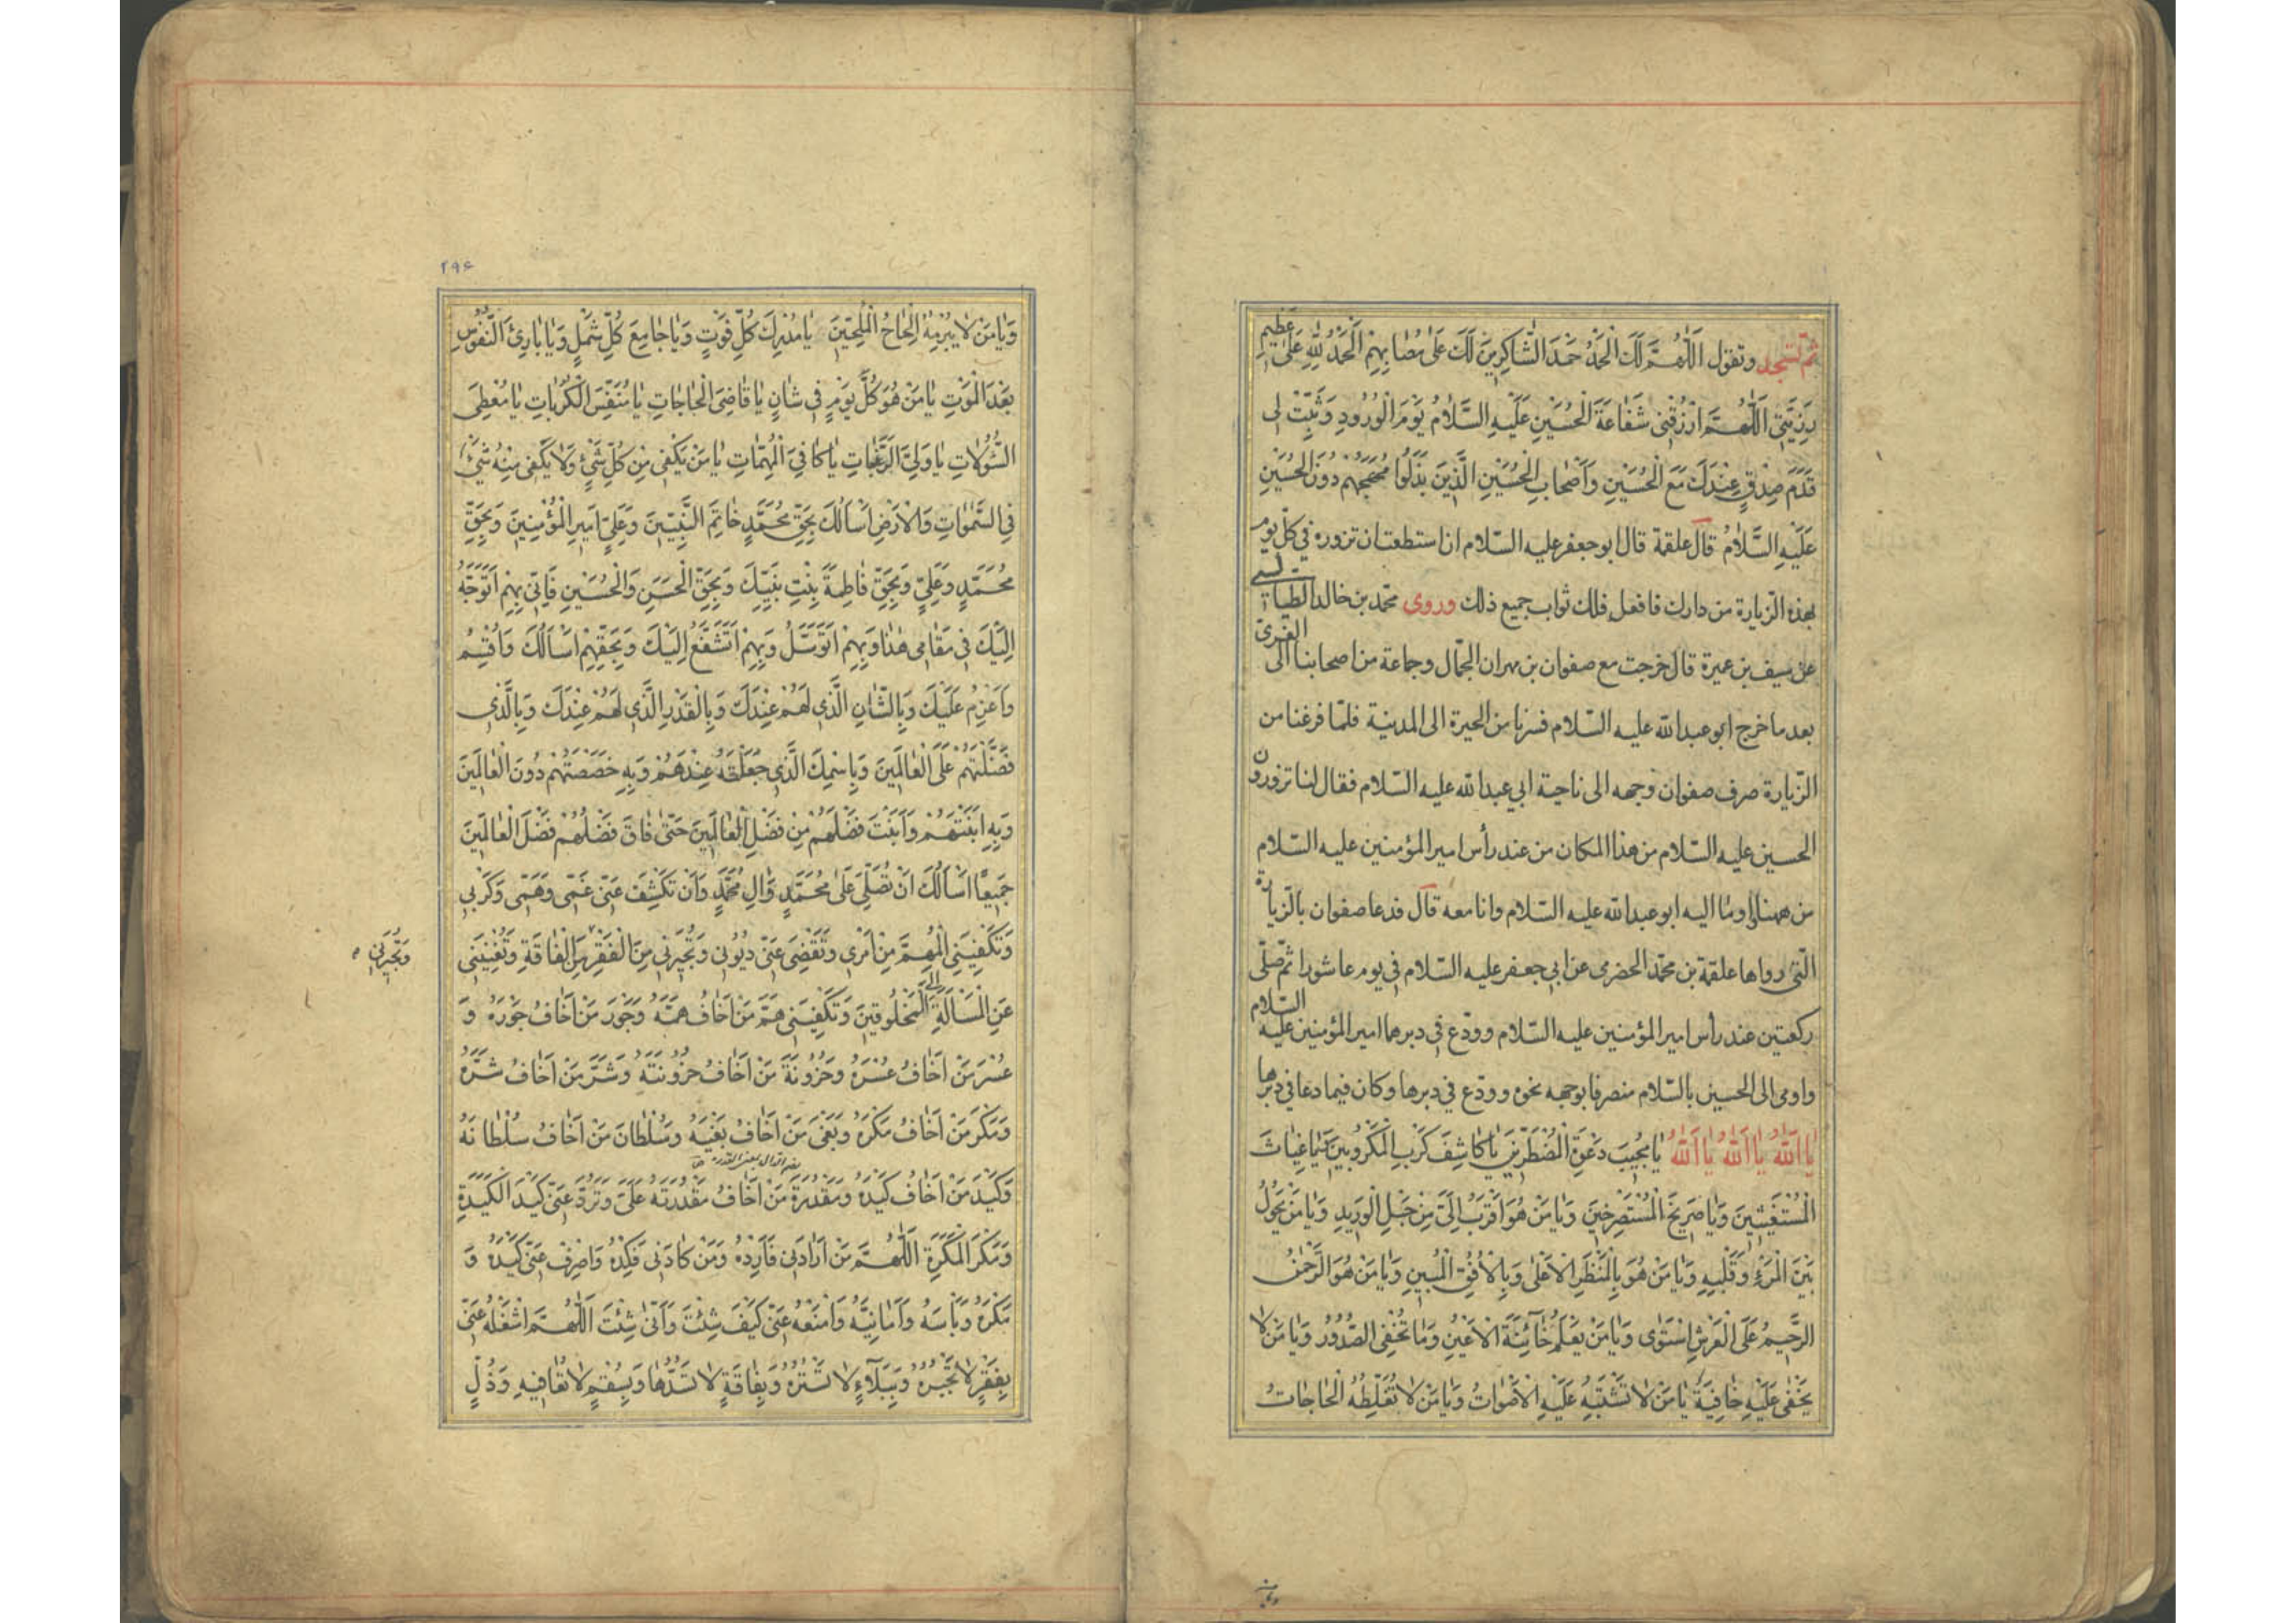 ثُمَّ تسجد وتقول اَللّٰهُمَّ لَكَ الْحَمْدُ حَمْدَ الشَّاكِرِينَ لَكَ عَلىٰ مُصٰابِهِمْ اَلْحَمْدُ لِلّٰهِ عَلىٰ عَظِيمِ
رَزِيَّتِى اَللّٰهُمَّ ارْزُقْنِى شَفٰاعَةَ الْحُسَيْنِ عَلَيْهِ السَّلٰامُ يَوْمَ الْوُرُودِ وَثَبِّتْ لِى
قَدَمَ صِدْقٍ عِنْدَكَ مَعَ الْحُسَيْنِ وَاَصْحٰابِ الْحُسَيْنِ الَّذِينَ بَذَلُوا مُهَجَهُمْ دُونَ الْحُسَيْنِ
عَلَيْهِ السَّلٰامُ قال علقمة قال ابوجعفر عليه السّلام ان استطعت ان تزوره في كلّ يوم
بهذه الزّيارة من دارك فافعل فلك ثواب جميع ذلك وروى محمّد بن خالد الطيالسي
عن سيف بن عميرة قال خرجت مع صفوان بن مهران الجمّال وجماعة من اصحابنا الى الغرىّ
بعد ما خرج ابو عبدالله عليه السّلام فسرنا من الحيرة الى المدينة فلمّا فرغنا من
الزّيارة صرف صفوان وجهه الى ناحية ابي عبدالله عليه السّلام فقال لنا تزورون
الحسين عليه السّلام من هذا المكان من عند رأس امير المؤمنين عليه السّلام
من ههنا واومٰا اليه ابو عبدالله عليه السّلام وانا معه قال فدعا صفوان بالزّيارة
الّتى رواها علقمة بن محمّد الحضرمى عن ابي جعفر عليه السّلام في يوم عاشورا ثمّ صلّى
ركعتين عند رأس امير المؤمنين عليه السّلام وودّع في دبرهما امير المؤمنين عليه السّلام
واومى الى الحسين بالسّلام منصرفا بوجهه نحوه وودّع في دبرها وكان فيما دعا في دبرها
يٰا اَللّٰهُ يٰا اَللّٰهُ يٰا اَللّٰهُ يٰا مُجِيبَ دَعْوَةِ الْمُضْطَرِّينَ يٰا كٰاشِفَ كَرْبِ الْمَكْرُوبِينَ يٰا غِيٰاثَ
الْمُسْتَغِيثِينَ وَيٰا صَرِيخَ الْمُسْتَصْرِخِينَ وَيٰا مَنْ هُوَ اَقْرَبُ اِلَىَّ مِنْ حَبْلِ الْوَرِيدِ وَيٰا مَنْ يَحُولُ
بَيْنَ الْمَرْءِ وَقَلْبِهِ وَيٰا مَنْ هُوَ بِالْمَنْظَرِ الْاَعْلىٰ وَبِالْاُفُقِ الْمُبِينِ وَيٰا مَنْ هُوَ الرَّحْمٰنُ
الرَّحِيمُ عَلَى الْعَرْشِ اسْتَوٰى وَيٰا مَنْ يَعْلَمُ خٰآئِنَةَ الْاَعْيُنِ وَمٰا تُخْفِى الصُّدُورُ وَيٰا مَنْ لٰا
يَخْفىٰ عَلَيْهِ خٰافِيَةٌ يٰا مَنْ لٰا تَشْتَبِهُ عَلَيْهِ الْاَصْوٰاتُ وَيٰا مَنْ لٰا تُغَلِّطُهُ الْحٰاجٰاتُ
۲۹۶
وَيٰا مَنْ لٰا يُبْرِمُهُ اِلْحٰاحُ الْمُلِحِّينَ يٰا مُدْرِكَ كُلِّ فَوْتٍ وَيٰا جٰامِعَ كُلِّ شَمْلٍ وَيٰا بٰارِئَ النُّفُوسِ
بَعْدَ الْمَوْتِ يٰا مَنْ هُوَ كُلَّ يَوْمٍ فِى شٰانٍ يٰا قٰاضِىَ الْحٰاجٰاتِ يٰا مُنَفِّسَ الْكُرُبٰاتِ يٰا مُعْطِىَ
السُّؤُلٰاتِ يٰا وَلِىَّ الرَّغَبٰاتِ يٰا كٰافِىَ الْمُهِمّٰاتِ يٰا مَنْ يَكْفِى مِنْ كُلِّ شَىْءٍ وَلٰا يَكْفِى مِنْهُ شَىْءٌ
فِى السَّمٰوٰاتِ وَالْاَرْضِ اَسْاَلُكَ بِحَقِّ مُحَمَّدٍ خٰاتَمِ النَّبِيِّينَ وَعَلِىٍّ اَمِيرِ الْمُؤْمِنِينَ وَبِحَقِّ
مُحَمَّدٍ وَعَلِىٍّ وَبِحَقِّ فٰاطِمَةَ بِنْتِ نَبِيِّكَ وَبِحَقِّ الْحَسَنِ وَالْحُسَيْنِ فَاِنِّى بِهِمْ اَتَوَجَّهُ
اِلَيْكَ فِى مَقٰامِى هٰذٰا وَبِهِمْ اَتَوَسَّلُ وَبِهِمْ اَتَشَفَّعُ اِلَيْكَ وَبِحَقِّهِمْ اَسْاَلُكَ وَاُقْسِمُ
وَاَعْزِمُ عَلَيْكَ وَبِالشّٰانِ الَّذِى لَهُمْ عِنْدَكَ وَبِالْقَدْرِ الَّذِى لَهُمْ عِنْدَكَ وَبِالَّذِى
فَضَّلْتَهُمْ عَلَى الْعٰالَمِينَ وَبِاسْمِكَ الَّذِى جَعَلْتَهُ عِنْدَهُمْ وَبِهِ خَصَصْتَهُمْ دُونَ الْعٰالَمِينَ
وَبِهِ اَبَنْتَهُمْ وَاَبَنْتَ فَضْلَهُمْ مِنْ فَضْلِ الْعٰالَمِينَ حَتّٰى فٰاقَ فَضْلُهُمْ فَضْلَ الْعٰالَمِينَ
جَمِيعًا اَسْاَلُكَ اَنْ تُصَلِّىَ عَلىٰ مُحَمَّدٍ وَّاٰلِ مُحَمَّدٍ وَاَنْ تَكْشِفَ عَنِّى غَمِّى وَهَمِّى وَكَرْبِى
وَتَكْفِيَنِى الْمُهِمَّ مِنْ اَمْرِى وَتَقْضِىَ عَنِّى دُيُونِى وَتُجِيرَنِى مِنَ الْفَقْرِ مِنَ الْفٰاقَةِ وَتُغْنِيَنِى
وَتُجِيرَنِى
عَنِ الْمَسْاَلَةِ اِلَى الْمَخْلُوقِينَ وَتَكْفِيَنِى هَمَّ مَنْ اَخٰافُ هَمَّهُ وَجَوْرَ مَنْ اَخٰافُ جَوْرَهُ وَ
عُسْرَ مَنْ اَخٰافُ عُسْرَهُ وَحُزُونَةَ مَنْ اَخٰافُ حُزُونَتَهُ وَشَرَّ مَنْ اَخٰافُ شَرَّهُ
وَمَكْرَ مَنْ اَخٰافُ مَكْرَهُ وَبَغْىَ مَنْ اَخٰافُ بَغْيَهُ وَسُلْطٰانَ مَنْ اَخٰافُ سُلْطٰانَهُ
وَكَيْدَ مَنْ اَخٰافُ كَيْدَهُ وَمَقْدُرَةَ مَنْ اَخٰافُ مَقْدُرَتَهُ عَلَىَّ وَتَرُدَّ عَنِّى كَيْدَ الْكَيَدَةِ
وَمَكْرَ الْمَكَرَةِ اَللّٰهُمَّ مَنْ اَرٰادَنِى فَاَرِدْهُ وَمَنْ كٰادَنِى فَكِدْهُ وَاصْرِفْ عَنِّى كَيْدَهُ وَ
مَكْرَهُ وَبَاْسَهُ وَاَمٰانِيَّهُ وَامْنَعْهُ عَنِّى كَيْفَ شِئْتَ وَاَنّٰى شِئْتَ اَللّٰهُمَّ اشْغَلْهُ عَنِّى
بِفَقْرٍ لٰا تَجْبُرُهُ وَبِبَلٰآءٍ لٰا تَسْتُرُهُ وَبِفٰاقَةٍ لٰا تَسُدُّهٰا وَبِسُقْمٍ لٰا تُعٰافِيهِ وَذُلٍّ